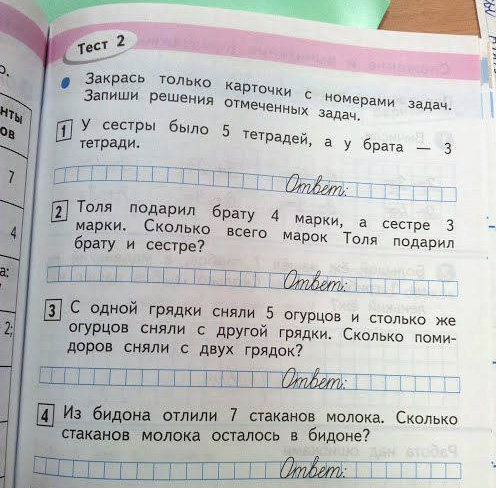 Тест 2
Закрась только карточки с номерами задач.
Запиши решения отмеченных задач.
1 У сестры было 5 тетрадей, а у брата — 3
тетради.
Ответ:
2 Толя подарил брату 4 марки, а сестре 3
марки. Сколько всего марок Толя подарил
брату и сестре?
Ответ:
3 С одной грядки сняли 5 огурцов и столько же
огурцов сняли с другой грядки. Сколько поми-
доров сняли с двух грядок?
Ответ:
4 Из бидона отлили 7 стаканов молока. Сколько
стаканов молока осталось в бидоне?
Ответ:
нты
ов
7
4
а:
2;